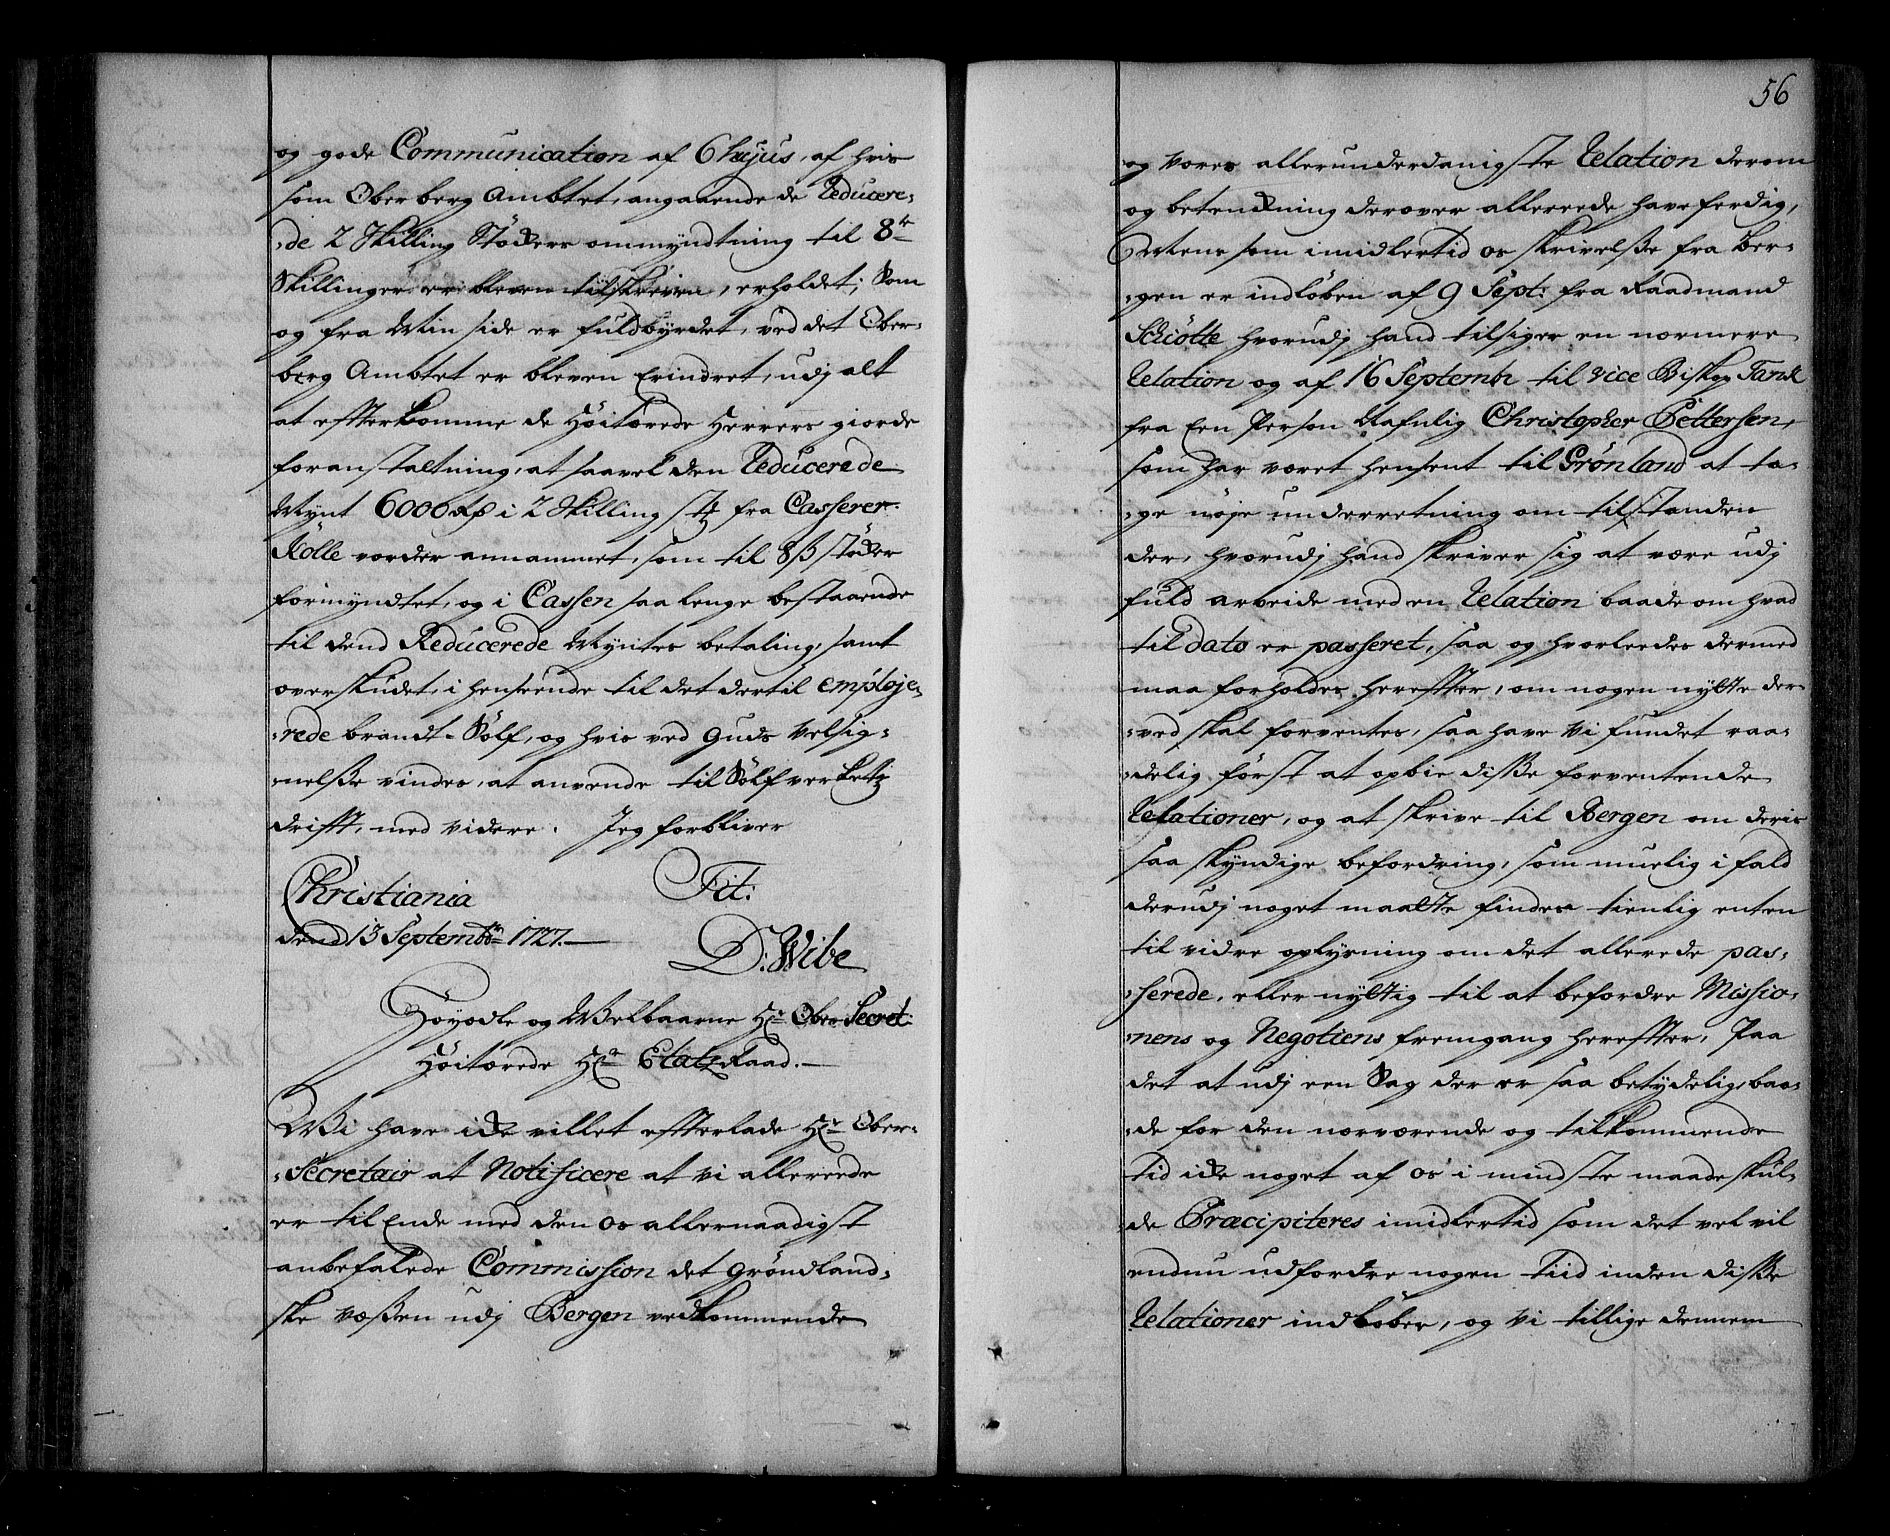 og gode Communication af 6 hujus, af hvis
som Oberberg Ambtet, angaaende de Reducere-
de 2 Skilling Støckers ommyndtning til 8te
Skillinger er bleven tilskreven, erholdet; Som
og fra Min side er fuldbyrdet, ved det Ober-
berg Ambtet er bleven Erindret, udj alt
at effterkomme de Høitærede Herrers giorde
foranstaltning, at saavel den Reducerede
Mynt 6000 Rd i 2 Skilling st fra Casserer
Rölle vorder annammet, som til 8 ß støcker
formyndtet, og i Cassen saa lenge bestaaende
til dend Reducerede Myntes betaling, samt
overskudet, i henseende til det dertil emploje-
rede brandt-Sølf, og hvis ved Guds Velsig-
nelsse vindes, at anvende til Sølfverketz
drifft, med videre. Jeg forbliver
Christiania Tit:
dend 13 Septembr 1727.
D: Wibe
Høyædle og Welbaarne Hr Ober Secret:
Høitærede Hr Etatz Raad.
Wi have icke villet effterlade Hr Ober-
Secretair at Notificere at vi allereede
er til Ende med den os allernaadigst
anbefalede Commission det Grøndland-
ske væssen udj Bergen vedkommende
56
og vores allerunderdanigste Relation derom
og betenckning derover allereede have ferdig,
Mens som imidlertid os skrivelsse fra Ber-
gen er indløben af 9 Sept: fra Raadmand
Schiötte hvorudj hand tilsiger en nærmere
Relation og af 16 Septembr til Vice Biskop Tank
fra Een Person Nafnlig Christopher Pettersen,
som har været hensent til Grønland at ta-
ge nøje underretning om tilstanden
der, hvorudj hand skriver sig at være udj
fuld arbeide med en Relation baade om hvad
til dato er passeret, saa og hvorleedes dermed
maa forholdes hereffter, om nogen nytte der-
ved skal forventes, saa have Vi fundet raa-
delig først at opbie disse forventende
Relationer, og at skrive til Bergen om deris
saa skyndige befordring, som muelig i fald
derudj noget maatte findes tienlig enten
til vidre oplysning om det allerede pas-
serede, eller nyttig til at befordre Missio-
nens og Negotiens fremgang hereffter, Paa
det at udj een Sag der er saa betydelig, baa-
de for den nærværende og tilkommende
tid icke noget af os i mindste maade skul-
de Præcipiteres imidlertid som det vel vil
endnu udfordre nogen tiid inden disse
Relationer indkober, og Vi tillige dennem